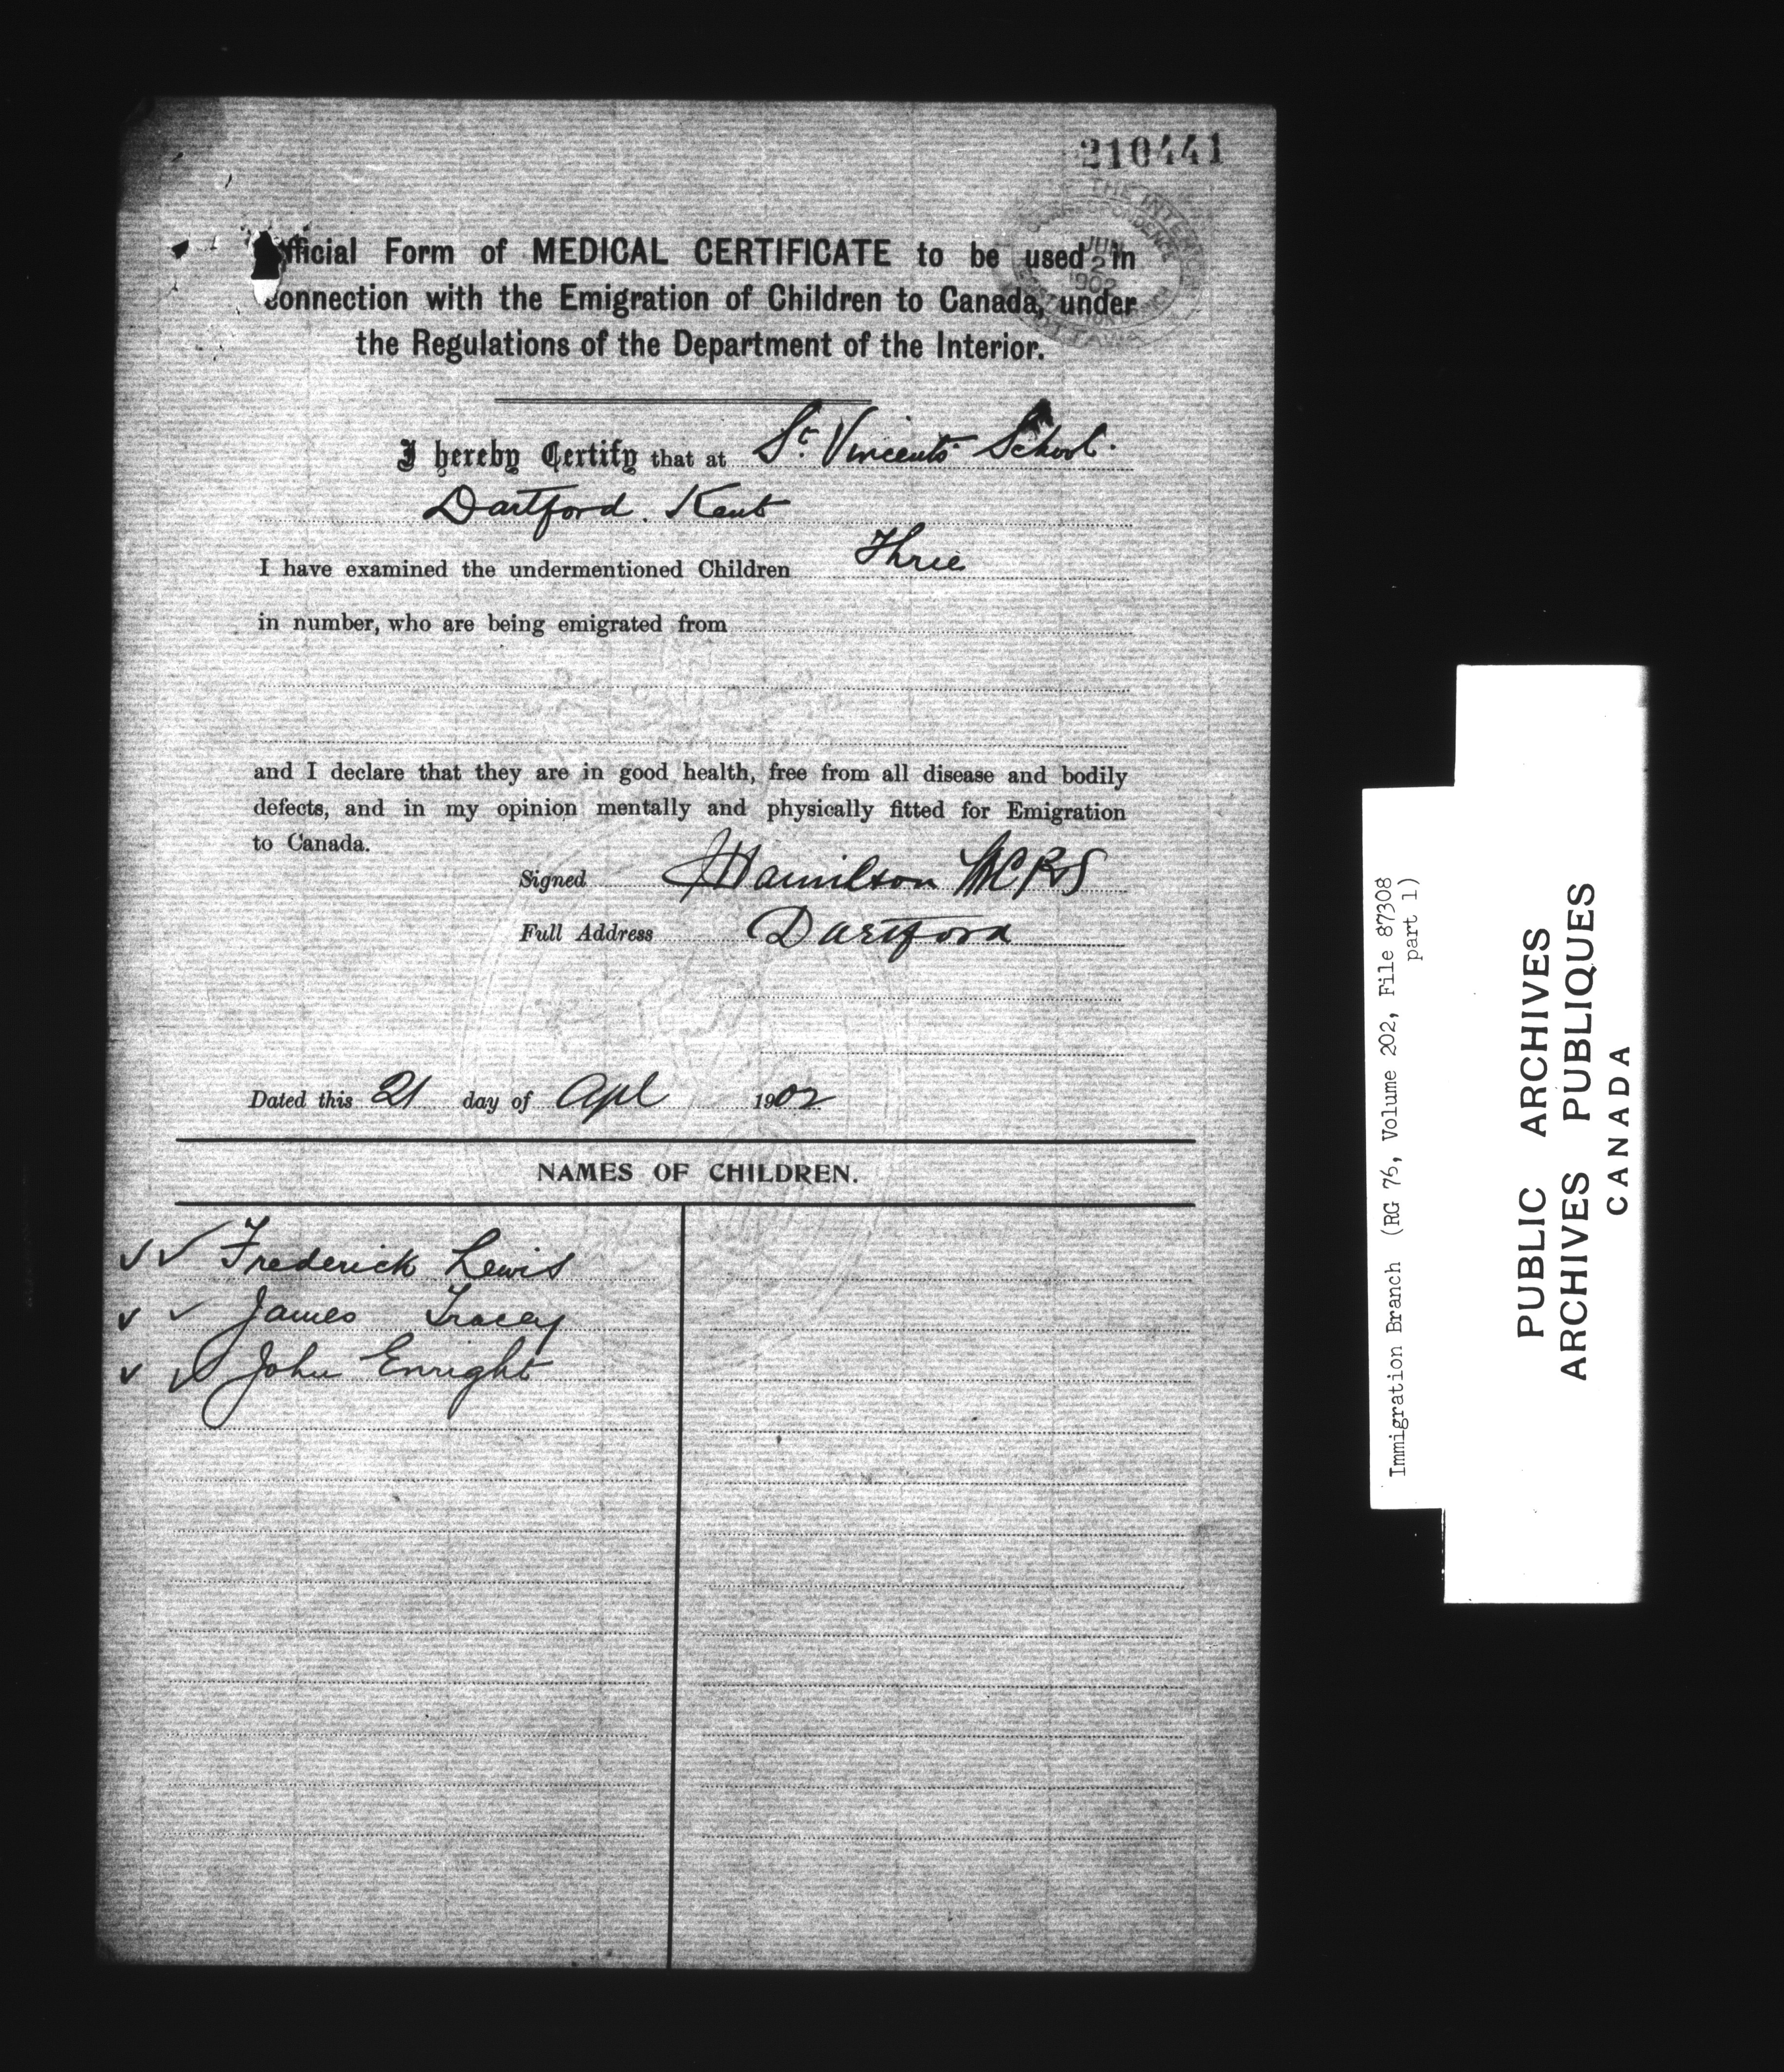 210441
THE INTERIOR
CORRESPONDENCE
JUN
2
1902
OTTAWA
fficial Form of MEDICAL CERTIFICATE to be used in
connection with the Emigration of Children to Canada, under
the Regulations of the Department of the Interior.
I hereby Certify that at St. Vincents School.
Dartford. Kent
I have examined the undermentioned Children Three
in number, who are being emigrated from
and I declare that they are in good health, free from all disease and bodily
defects, and in my opinion mentally and physically fitted for Emigration
to Canada.
Signed Hamilton MRCS
Full Address Dartford
Dated this 21 day of Apl 1902
NAMES OF CHILDREN.
Frederick Lewis
James Tracey
John Enright
Immigration Branch (RG 76, Volume 202, File 87308
part 1)
PUBLIC ARCHIVES
ARCHIVES PUBLIQUES
CANADA